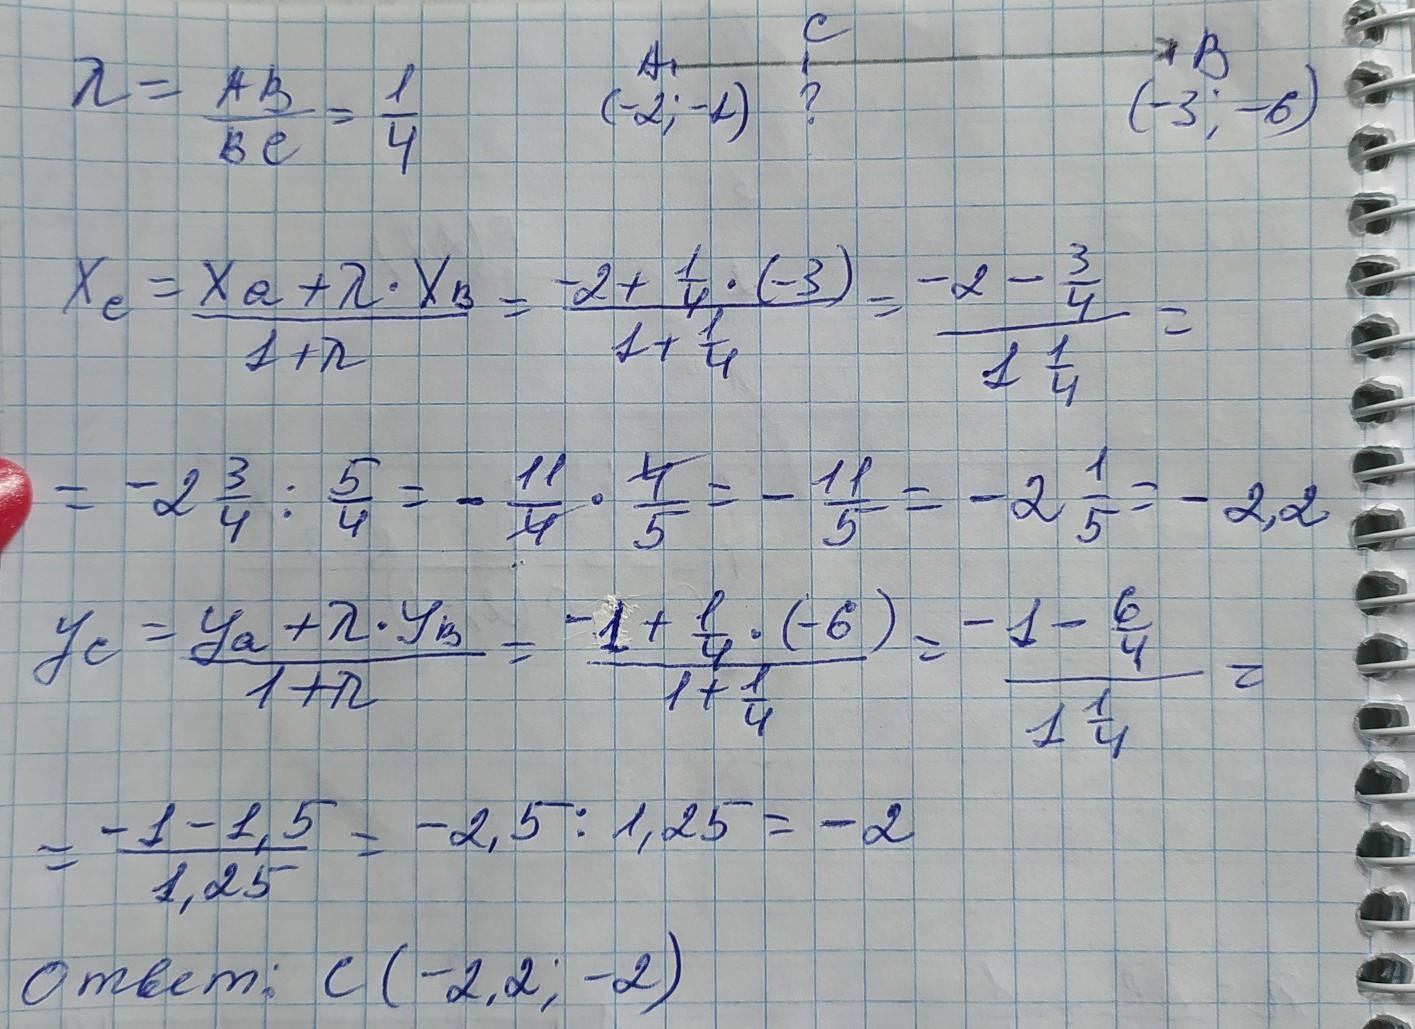 λ = AB/BC = 1/4 A C B
(-2; -1) ? (-3; -6)
Xc = (Xa + λ · XB)/(1 + λ) = (-2 + 1/4 · (-3))/(1 + 1/4) = (-2 - 3/4)/(1 1/4) =
= -2 3/4 : 5/4 = - 11/4 · 4/5 = - 11/5 = -2 1/5 = - 2,2
yc = (ya + λ · yB)/(1 + λ) = (-1 + 1/4 · (-6))/(1 + 1/4) = (-1 - 6/4)/(1 1/4) =
= (-1 - 1,5)/1,25 = -2,5 : 1,25 = -2
Ответ: C (-2,2; -2)